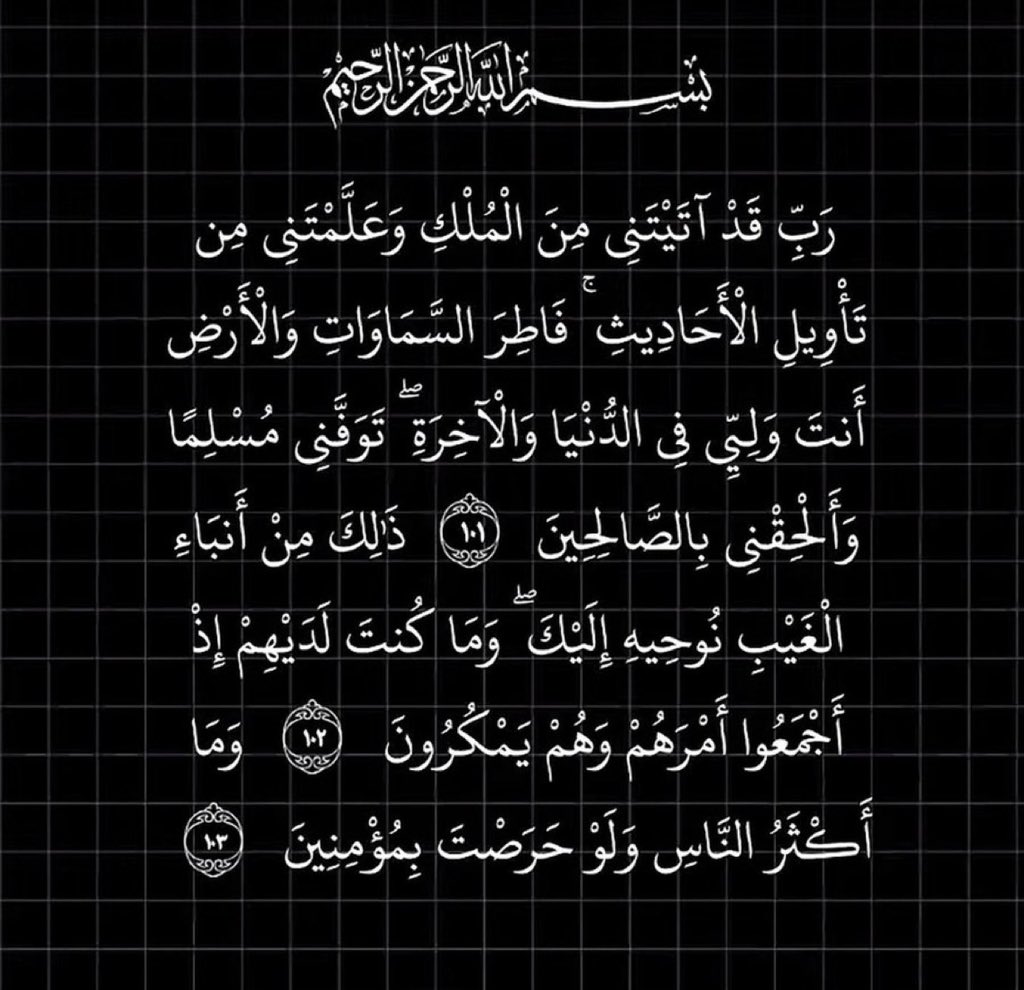 بِسْمِ اللَّهِ الرَّحْمَنِ الرَّحِيمِ
رَبِّ قَدْ آتَيْتَنِي مِنَ الْمُلْكِ وَعَلَّمْتَنِي مِن
تَأْوِيلِ الْأَحَادِيثِ ۚ فَاطِرَ السَّمَاوَاتِ وَالْأَرْضِ
أَنتَ وَلِيِّي فِي الدُّنْيَا وَالْآخِرَةِ ۖ تَوَفَّنِي مُسْلِمًا
وَأَلْحِقْنِي بِالصَّالِحِينَ ١٠١ ذَٰلِكَ مِنْ أَنبَاءِ
الْغَيْبِ نُوحِيهِ إِلَيْكَ ۖ وَمَا كُنتَ لَدَيْهِمْ إِذْ
أَجْمَعُوا أَمْرَهُمْ وَهُمْ يَمْكُرُونَ ١٠٢ وَمَا
أَكْثَرُ النَّاسِ وَلَوْ حَرَصْتَ بِمُؤْمِنِينَ ١٠٣